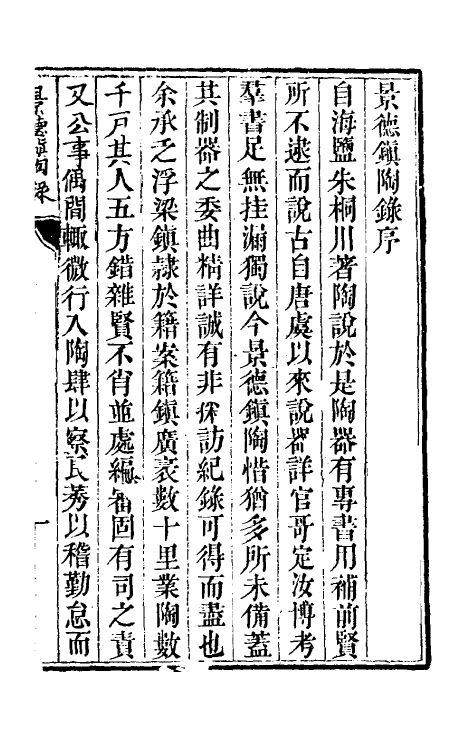 景德鎮陶錄序
自海鹽朱桐川著陶說於是陶器有專書用補前賢
所不逮而說古自唐虞以來說器詳官哥定汝博考
羣書足無挂漏獨說今景德鎮陶惜猶多所未備蓋
其制器之委曲精詳誠有非採訪紀錄可得而盡也
余承乏浮梁鎮隷於籍案籍鎮廣袤數十里業陶數
千戸其人五方錯雜賢不肖並處編審固有司之責
又公事偶閒輙微行入陶肆以察良莠以稽勤怠而
景德鎮陶錄
一